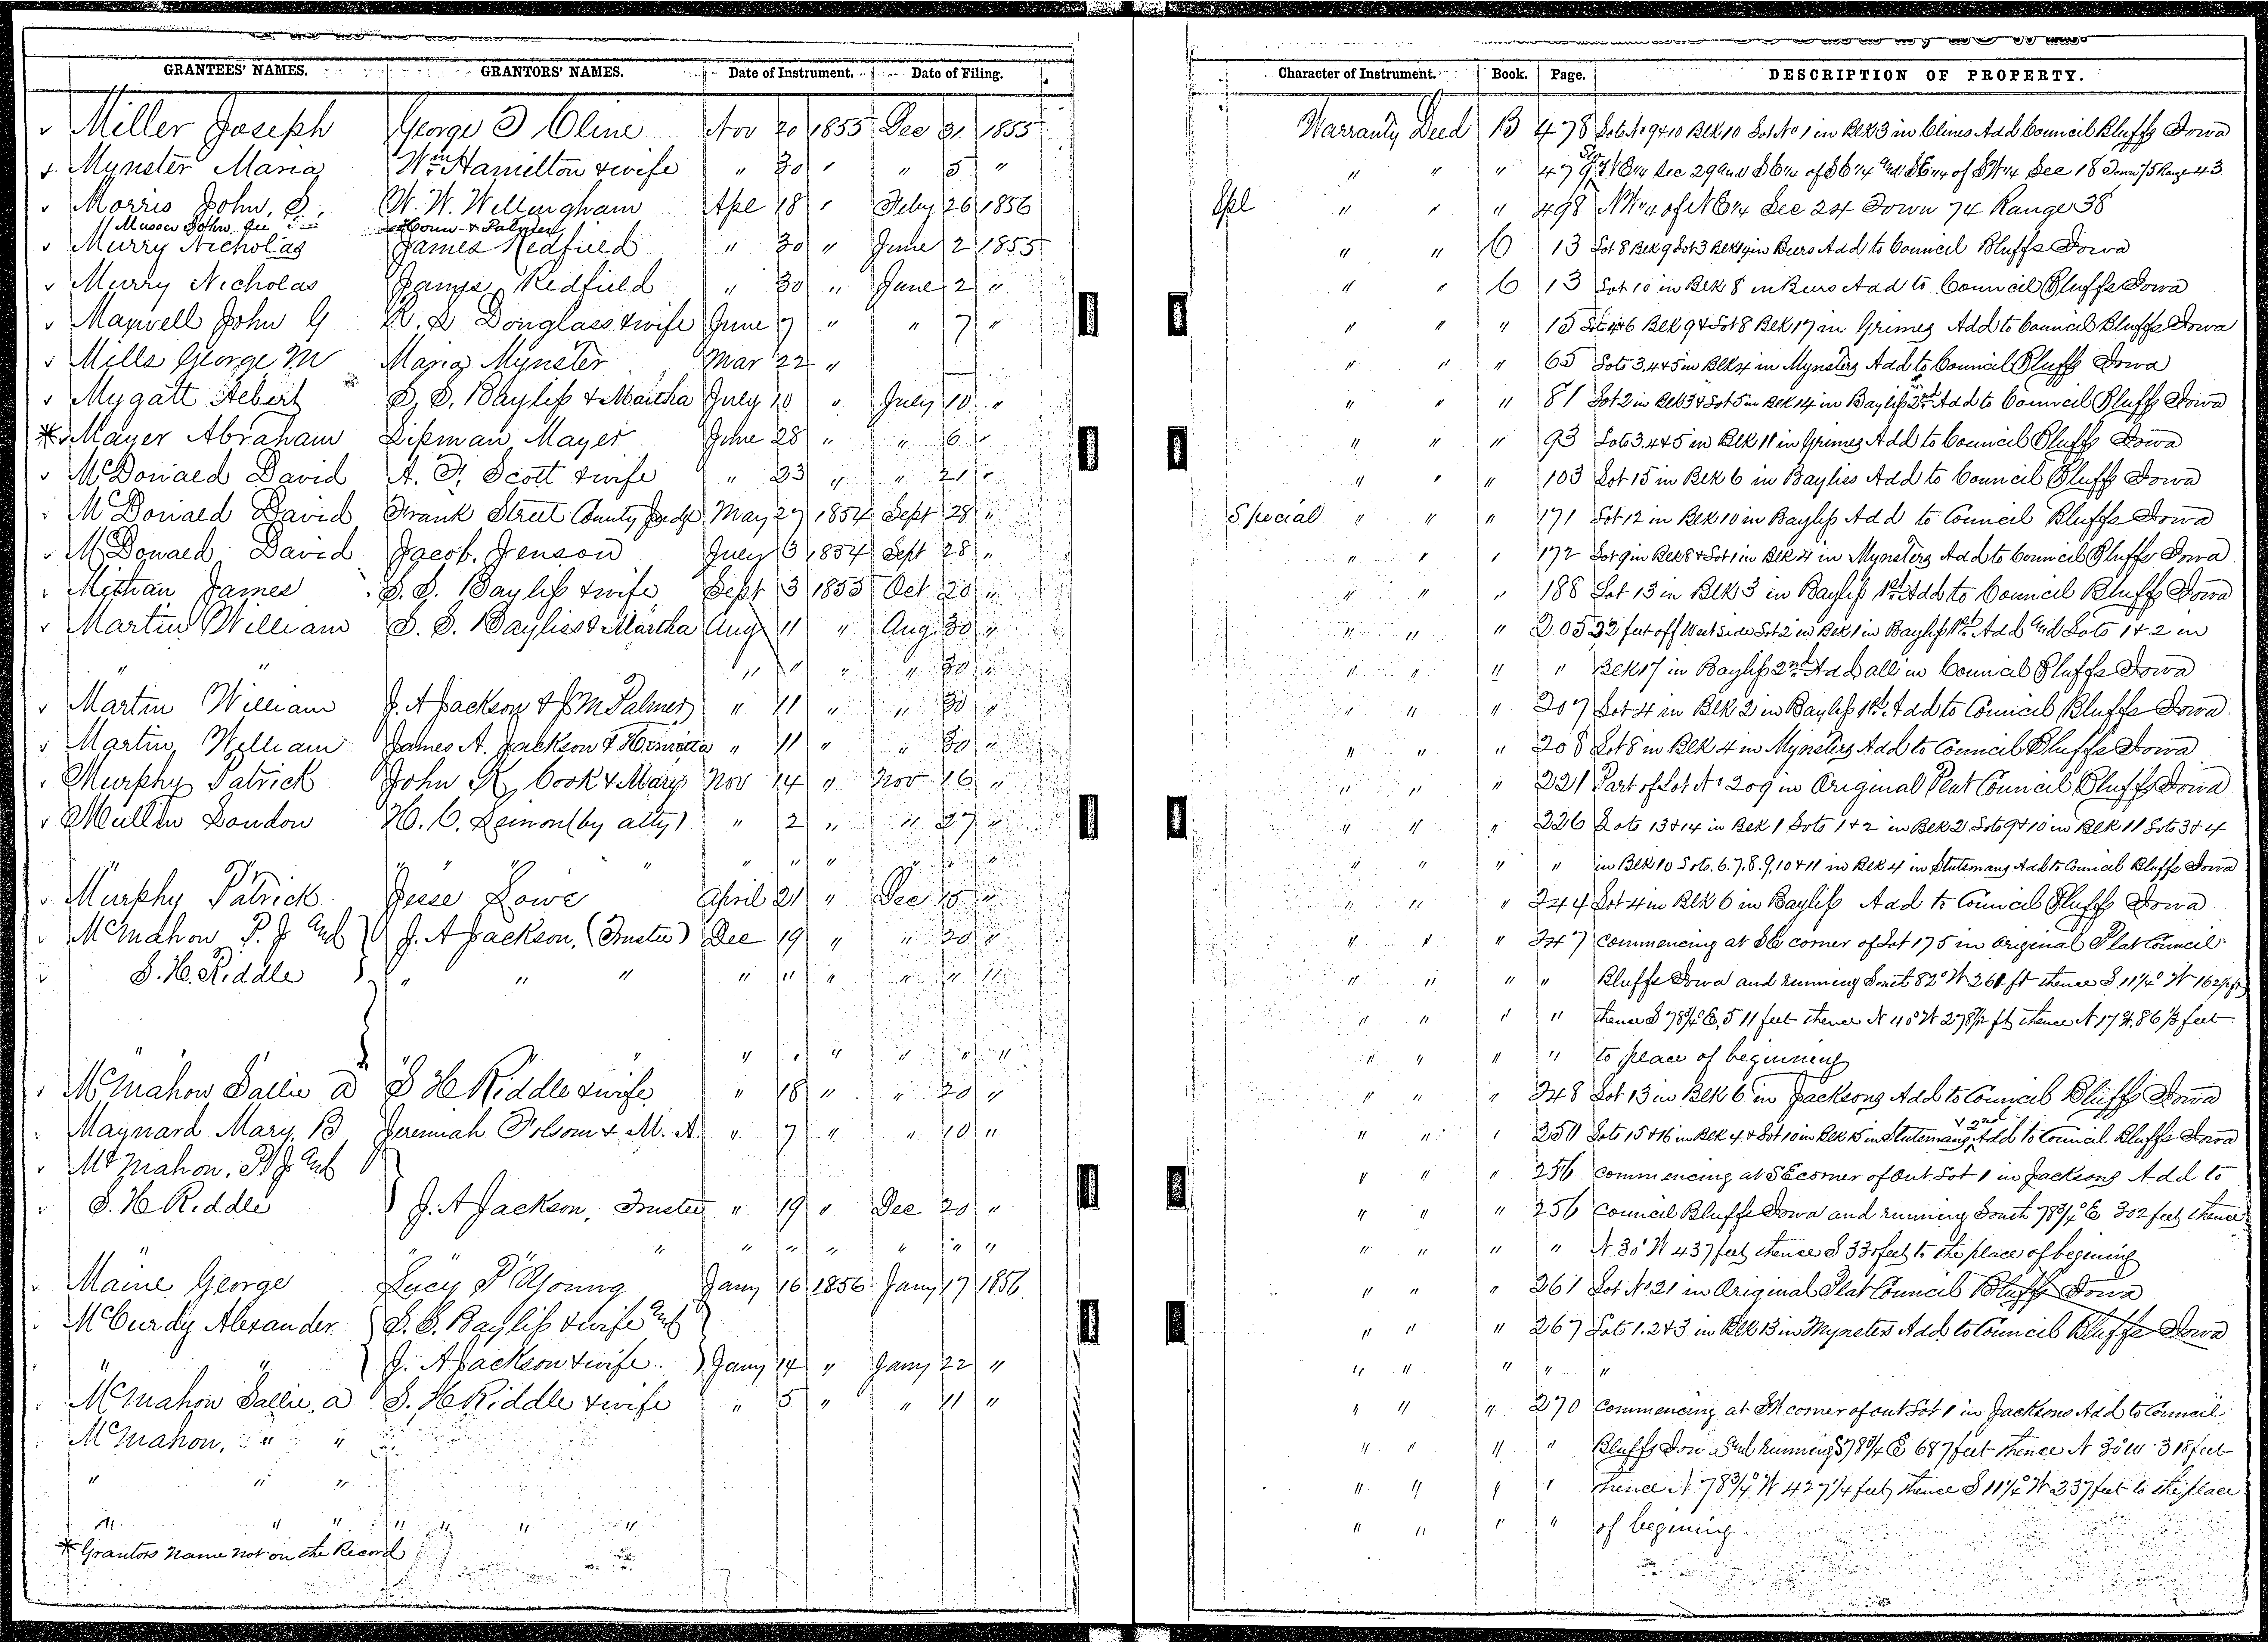 GRANTEES' NAMES. GRANTORS' NAMES. Date of Instrument. Date of Filing. Character of Instrument. Book. Page. DESCRIPTION OF PROPERTY.
Miller Joseph George T Cline Nov 20 1855 Dec 31 1855 Warranty Deed B 478 Lots No 9 & 10 Blk 10 Lot No 1 in Blk 3 in Clines Add Council Bluffs Iowa
Mynster Maria Wm Hamilton & wife " 30 " " 5 " " " " 479 NE 1/4 Sec 29 and SE 1/4 of SE 1/4 and SE 1/4 of SW 1/4 Sec 18 Town 75 Range 43
Morris John. S. W. W. Wellingham Apl 18 " Feby 26 1856 Spl " " " 498 NW 1/4 of NE 1/4 Sec 24 Town 74 Range 38
Musser John
Murry Nicholas James Redfield " 30 " June 2 1855 " " C 13 Lot 8 Blk 9 Lot 3 Blk 14 in Beers Add to Council Bluffs Iowa
Murry Nicholas James Redfield " 30 " June 2 " " " C 13 Lot 10 in Blk 8 in Beers Add to Council Bluffs Iowa
Maxwell John G R. L Douglass & wife June 7 " " 7 " " " " 15 Blk 9 & Lot 8 Blk 17 in Grimes Add to Council Bluffs Iowa
Mills George M Maria Mynster Mar 22 " " " " 65 Lots 3. 4 & 5 in Blk 4 in Mynsters Add to Council Bluffs Iowa
Mygatt Hebert S. S. Bayliss & Martha July 10 " July 10 " " " " 81 Lot 2 in Blk 3 & Lot 5 in Blk 14 in Bayliss 2nd Add to Council Bluffs Iowa
* Mayer Abraham Lipman Mayer June 28 " " 6 " " " " 93 Lots 3. 4 & 5 in Blk 11 in Grimes Add to Council Bluffs Iowa
McDonald David A. F. Scott & wife " 23 " " 21 " " " " 103 Lot 15 in Blk 6 in Bayliss Add to Council Bluffs Iowa
McDonald David Frank Street County Judge May 27 1854 Sept 28 " Special " " " 171 Lot 12 in Blk 10 in Bayliss Add to Council Bluffs Iowa
McDonald David Jacob. Jenson July 3 1854 Sept 28 " " " " 172 Lot 9 in Blk 8 & Lot 1 in Blk 4 in Mynsters Add to Council Bluffs Iowa
Methan James S. S. Bayliss & wife Sept 3 1855 Oct 20 " " " " 188 Lot 13 in Blk 3 in Bayliss 1st Add to Council Bluffs Iowa
Martin William S. S. Bayliss & Martha Aug 11 " Aug 30 " " " " 205 32 feet off West side Lot 2 in Blk 1 in Bayliss 1st Add and Lots 1 & 2 in
" " " " " " 30 " " " " " Blk 17 in Bayliss 2nd Add all in Council Bluffs Iowa
Martin William J. A Jackson & J M Palmer " 11 " " 30 " " " " 207 Lot 4 in Blk 2 in Bayliss 1st Add to Council Bluffs Iowa
Martin William James A. Jackson & Henrietta " 11 " " 30 " " " " 208 Lot 8 in Blk 4 in Mynsters Add to Council Bluffs Iowa
Murphy Patrick John K. Cook & Mary Nov 14 " Nov 16 " " " " 221 Part of Lot No 209 in Original Plat Council Bluffs Iowa
Mullin Loudon H. C. Leimon (by atty) " 2 " " 27 " " " " 226 Lots 13 & 14 in Blk 1 Lots 1 & 2 in Blk 2 Lots 9 & 10 in Blk 11 Lots 3 & 4
" " " " " " " " " " " " " in Blk 10 Lots. 6. 7. 8. 9. 10 & 11 in Blk 4 in Stutsmans Add to Council Bluffs Iowa
Murphy Patrick Jesse Lowe April 21 " Dec 15 " " " " 244 Lot 4 in Blk 6 in Bayliss Add to Council Bluffs Iowa
McMahon P. J and J. A Jackson, (Trustee) Dec 19 " " 20 " " " " 247 Commencing at SE corner of Lot 175 in Original Plat Council
S. H. Riddle " " " " " " " " " " " " " Bluffs Iowa and running South 82° W 261 ft thence S 11 1/4° W 162 1/2 ft
" " " " thence S 78 3/4° E, 511 feet thence N 40° W 278 1/2 ft thence N 17 W. 86 1/3 feet
" " " " " " " " " " " " to place of beginning
McMahon Sallie A S H Riddle & wife " 18 " " 20 " " " " 248 Lot 13 in Blk 6 in Jacksons Add to Council Bluffs Iowa
Maynard Mary. B Jeremiah Folsom & M. A. " 7 " " 10 " " " " 250 Lots 15 & 16 in Blk 4 & Lot 10 in Blk 15 in Stutsmans & 2nd Add to Council Bluffs Iowa
McMahon. P. J. and " " " 256 Commencing at SE corner of Out Lot 1 in Jacksons Add to
S. H. Riddle J. A Jackson, Trustee " 19 " Dec 20 " " " " 256 Council Bluffs Iowa and running South 78 3/4° E 302 feet thence
" " " " " " " " " " " " " N 30° W 437 feet thence S 330 feet to the place of begining
Maine George Lucy P Young Jany 16 1856 Jany 17 1856. " " " 261 Lot No 21 in Original Plat Council Bluffs Iowa
McCurdy Alexander S. S. Bayliss & wife and " " " 267 Lots 1. 2 & 3 in Blk 13 in Mynsters Add to Council Bluffs Iowa
" " J. A Jackson & wife. Jany 14 " Jany 22 " " " " " "
McMahon Sallie. A S. H Riddle & wife " 5 " " 11 " " " " 270 Commencing at SW corner of out Lot 1 in Jacksons Add to Council
McMahon, " " " " " " Bluffs and running S 78 3/4 E 687 feet thence N 30 W 318 feet
" " " " " " " thence N. 78 3/4° W 427 1/4 feet thence S 11 1/4° W 237 feet to the place
" " " " " " " " " " " of begining.
* Grantors Name not on the Record